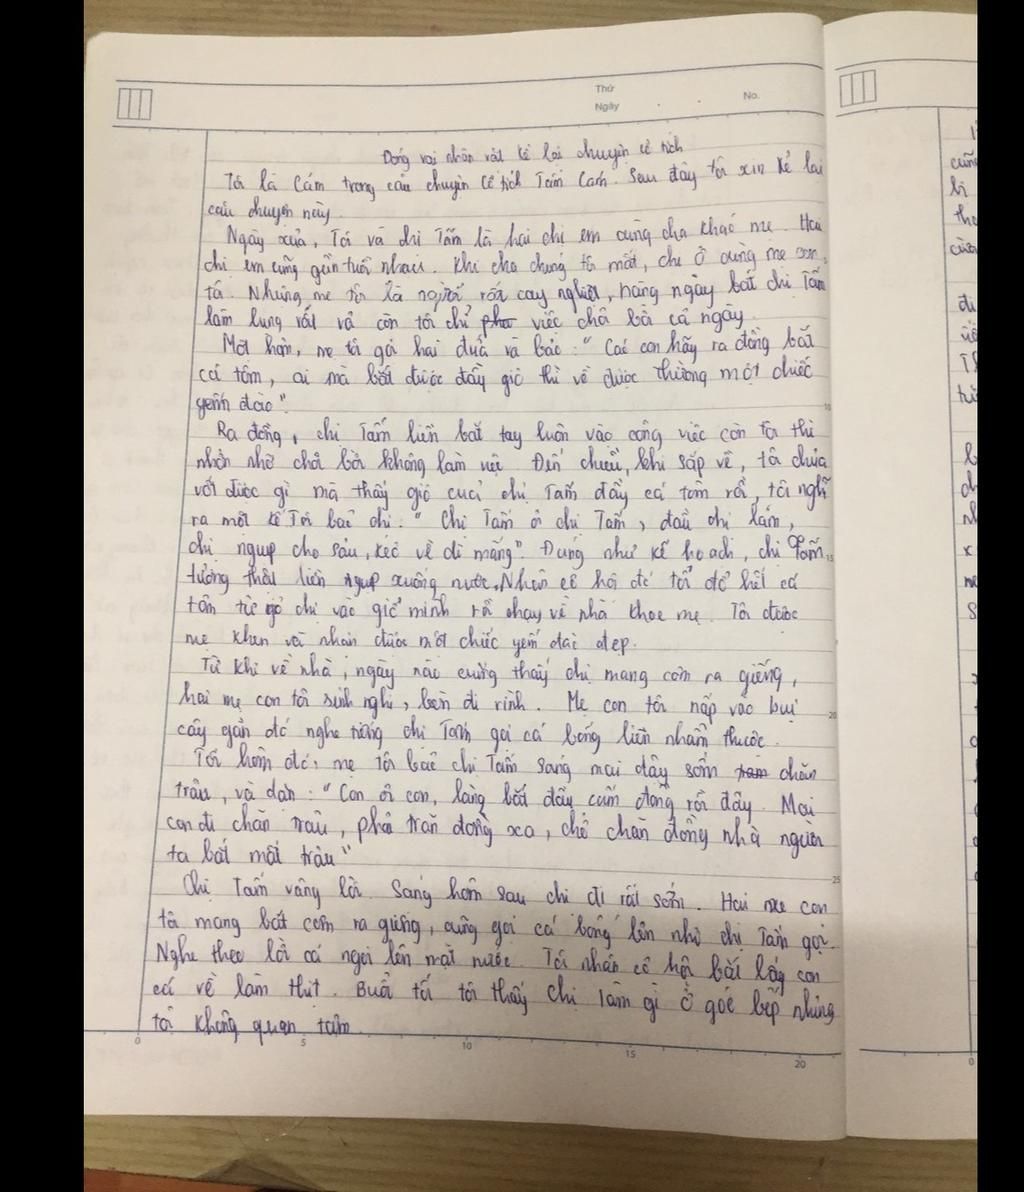 Thứ
Ngày
No.
Đóng vai nhân vật kể lại chuyện cổ tích
Tôi là Cám trong câu chuyện Cổ tích Tấm Cám. Sau đây tôi xin kể lại
câu chuyện này.
Ngày xưa, Tôi và chị Tấm là hai chị em cùng cha khác mẹ. Hai
chị em cũng gần tuổi nhau. Khi cha chúng tôi mất, chị ở cùng mẹ con
tôi. Nhưng mẹ tôi là người rất cay nghiệt, hàng ngày bắt chị Tấm
làm lụng vất vả còn tôi chỉ việc chơi bời cả ngày.
Một hôm, mẹ tôi gọi hai đứa và bảo: "Các con hãy ra đồng bắt
cá tôm, ai mà bắt được đầy giỏ thì về được thưởng một chiếc
yếm đào".
Ra đồng, chị Tấm liền bắt tay luôn vào công việc còn tôi thì
nhởn nhơ chơi bời không làm việc. Đến chiều, khi sắp về, tôi chưa
vớt được gì mà thấy giỏ của chị Tấm đầy cá tôm rồi, tôi nghĩ
ra một kế Tôi bảo chị: "Chị Tấm ơi chị Tấm, đầu chị lấm,
chị ngụp cho sâu, kẻo về dì mắng". Đúng như kế hoạch, chị Tấm
tưởng thật liền ngụp xuống nước. Nhân cơ hội đó tôi đổ hết cá
tôm từ giỏ chị vào giỏ mình rồi chạy về nhà khoe mẹ. Tôi được
mẹ khen và nhận được một chiếc yếm đào đẹp.
Từ khi về nhà, ngày nào cũng thấy chị mang cơm ra giếng,
hai mẹ con tôi sinh nghi, bèn đi rình. Mẹ con tôi nấp vào bụi
cây gần đó nghe tiếng chị Tấm gọi cá bống liền nhẩm thuộc.
Tối hôm đó, mẹ tôi bảo chị Tấm sáng mai dậy sớm chăn
trâu, và dặn: "Con ơi con, làng bắt đầu cấm đồng rồi đấy. Mai
con đi chăn trâu, phải trăn đồng xa, chớ chăn đồng nhà người
ta bắt mất trâu"
Chị Tấm vâng lời. Sáng hôm sau chị đi rất sớm. Hai mẹ con
tôi mang bát cơm ra giếng, cũng gọi cá bống lên như chị Tấm gọi.
Nghe theo lời cá ngoi lên mặt nước. Tôi nhân cơ hội bắt lấy con
cá về làm thịt. Buổi tối tôi thấy chị làm gì ở góc bếp nhưng
tôi không quan tâm.
0
5
10
15
20
10
15
20
25
0